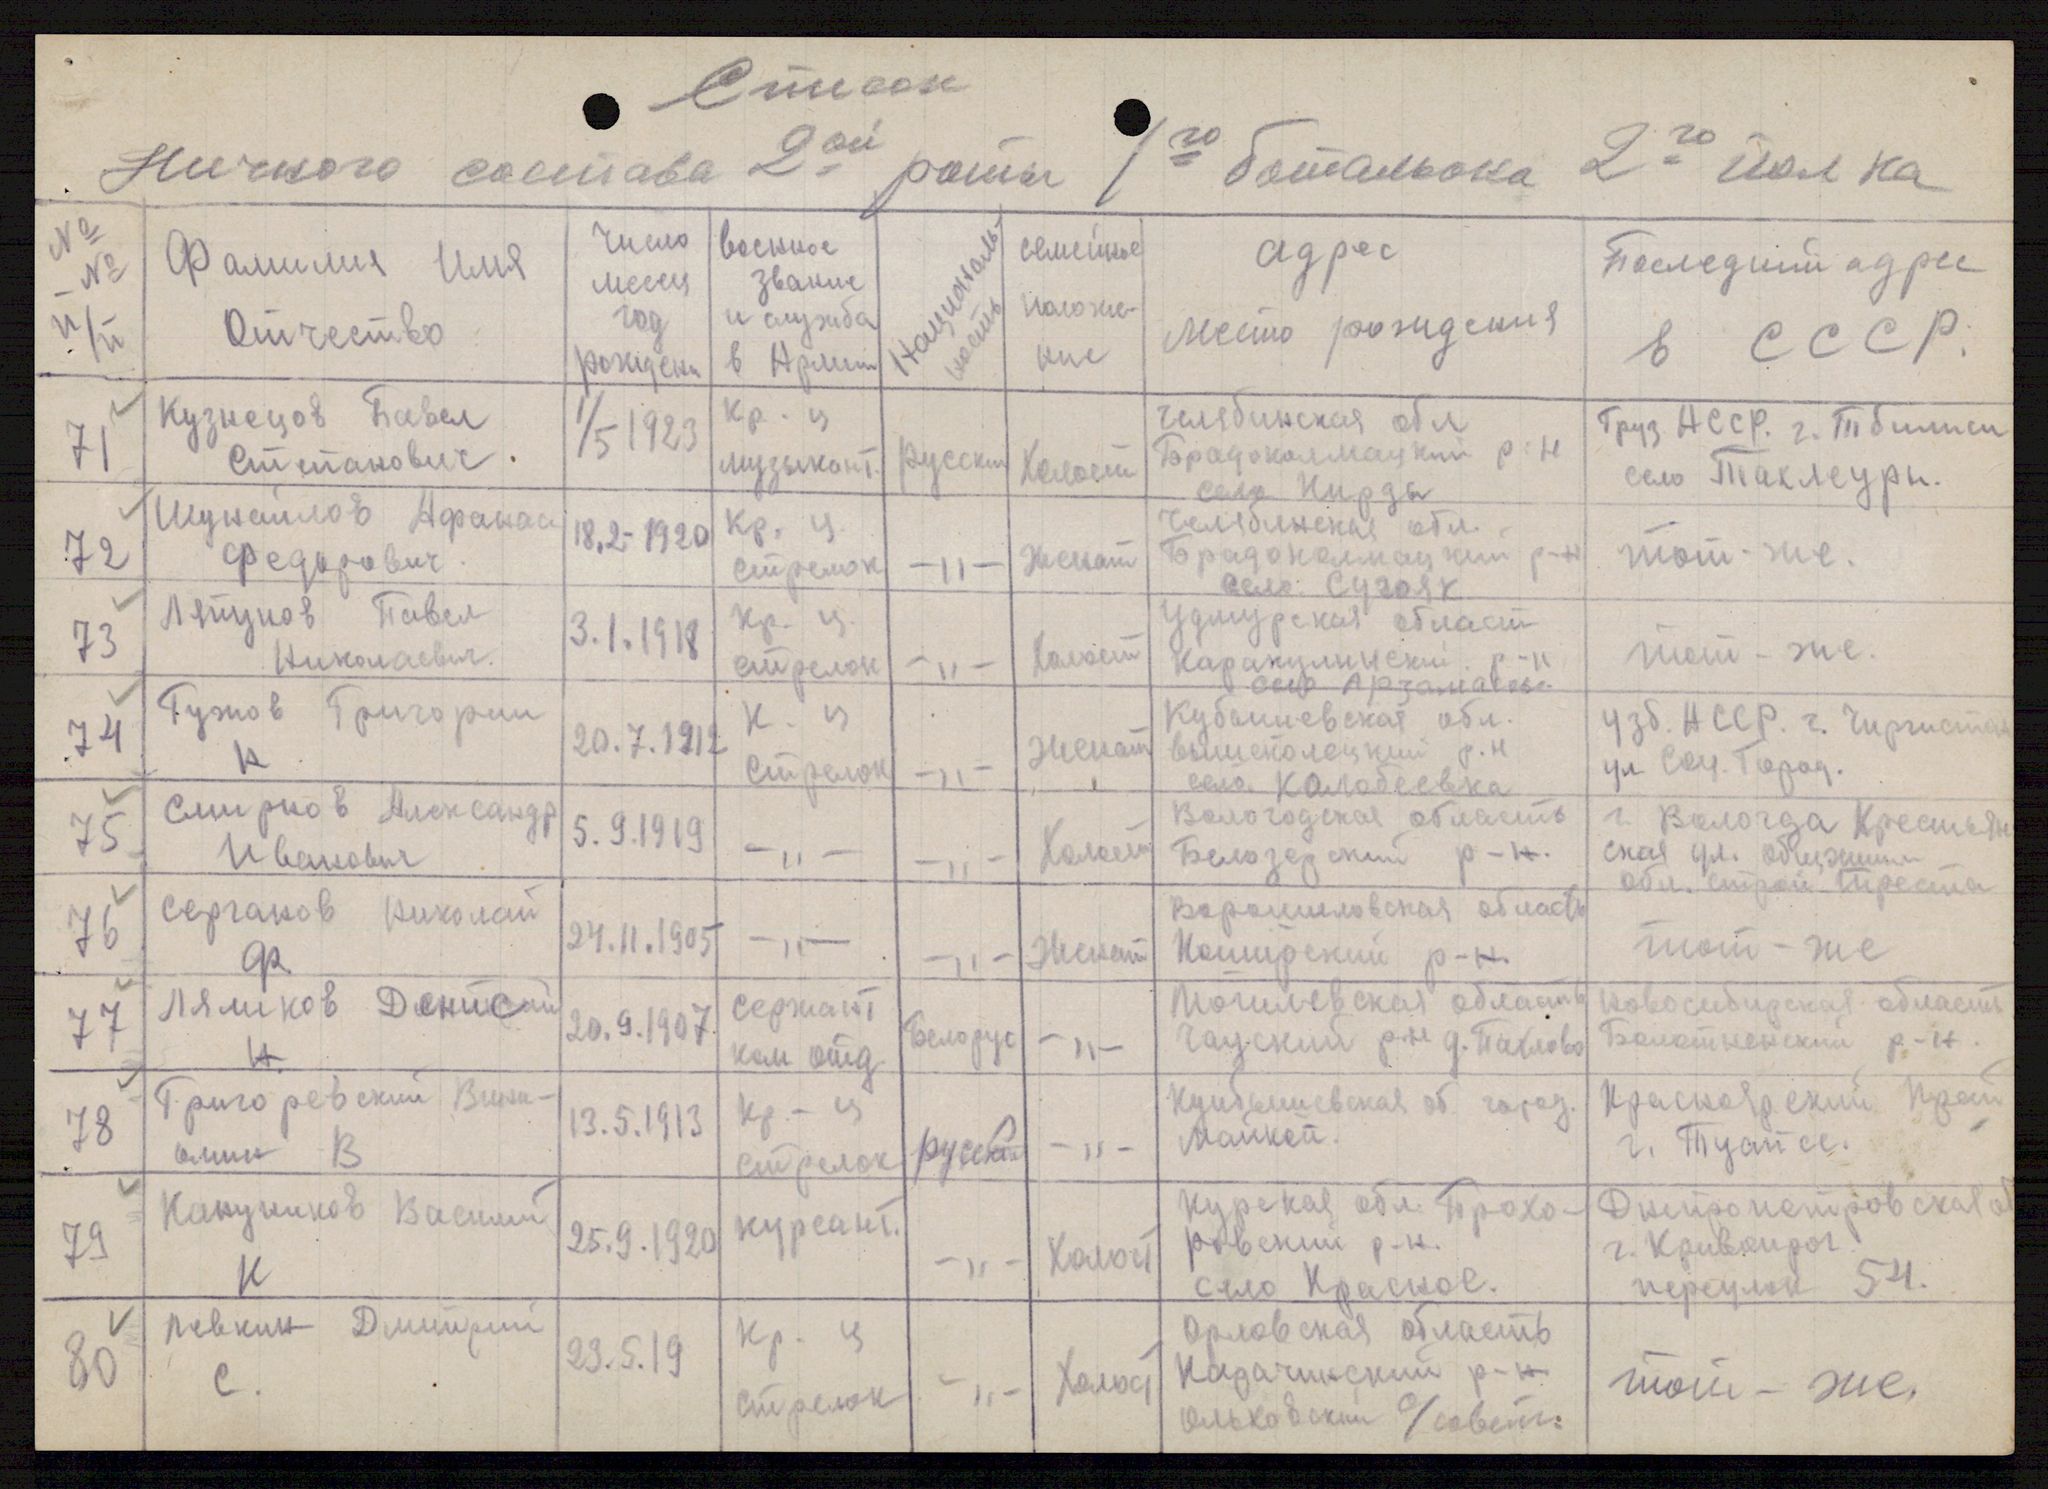 Список
Личного состава 2ой роты 1го батальона 2го полка
№ № п/п
Фамилия Имя Отчество
Число месец год рождени
военное звание и служба в Армии
Националь-ность
семейное положе-ние
адрес место рождения
Последний адрес в СССР.
71 Кузнецов Павел 1/5 1923 Кр-ц Челябинская обл Груз АССР. г. Тбилиси
Степанович. музыкант. русский Холост Бродоколмацкий р-н село
село Кирды
72 Афанас 18.2-1920 Кр. ц. Челябинская обл.
Федорович. стрелок -"- Женат Бродоколмацкий р-н тот-же.
село Сугояк
73 Ляпунов Павел 3.1.1918 Кр. ц. Удмурская област
Николаевич. стрелок -"- Холост Каракулинский р-н тот-же.
село Арзамасы
74 Гужов Григории 20.7.1912 К-ц обл. Узб. АССР. г.
К стрелок -"- Женат р.н ул Соц. Город.
село Колобеевка
75 Смирнов Александр 5.9.1919 Вологодская область г. Вологда Крестьян
Иванович -"- -"- Холост Белозерский р-н. ская ул. общежит
обл. строй. Треста
76 Серганов Николай 24.11.1905 -"- Ворошиловская область
Ф -"- Женат р-н. тот-же
77 Ляликов 20.9.1907 сержант Могилевская область Новосибирская область
К. ком отд Белорус -"- Чауский р-н д. Болотненский р-н.
78 Григоревский Вини- 13.5.1913 Кр-ц Куибышевская об город. Красноярский Край
амин В стрелок русский -"- Маикоп. г. Туапсе.
79 Канунников Василий 25.9.1920 курсант. Курская обл. Прохо- Днепропетровская об
К -"- Холост ровский р-н. г. Кривойрог
село Красное. переулок 54.
80 Левкин Дмитрий 23.5.19 Кр. ц Орловская область
С. стрелок -"- Холост р-н тот-же.
Ольховский с/совет.